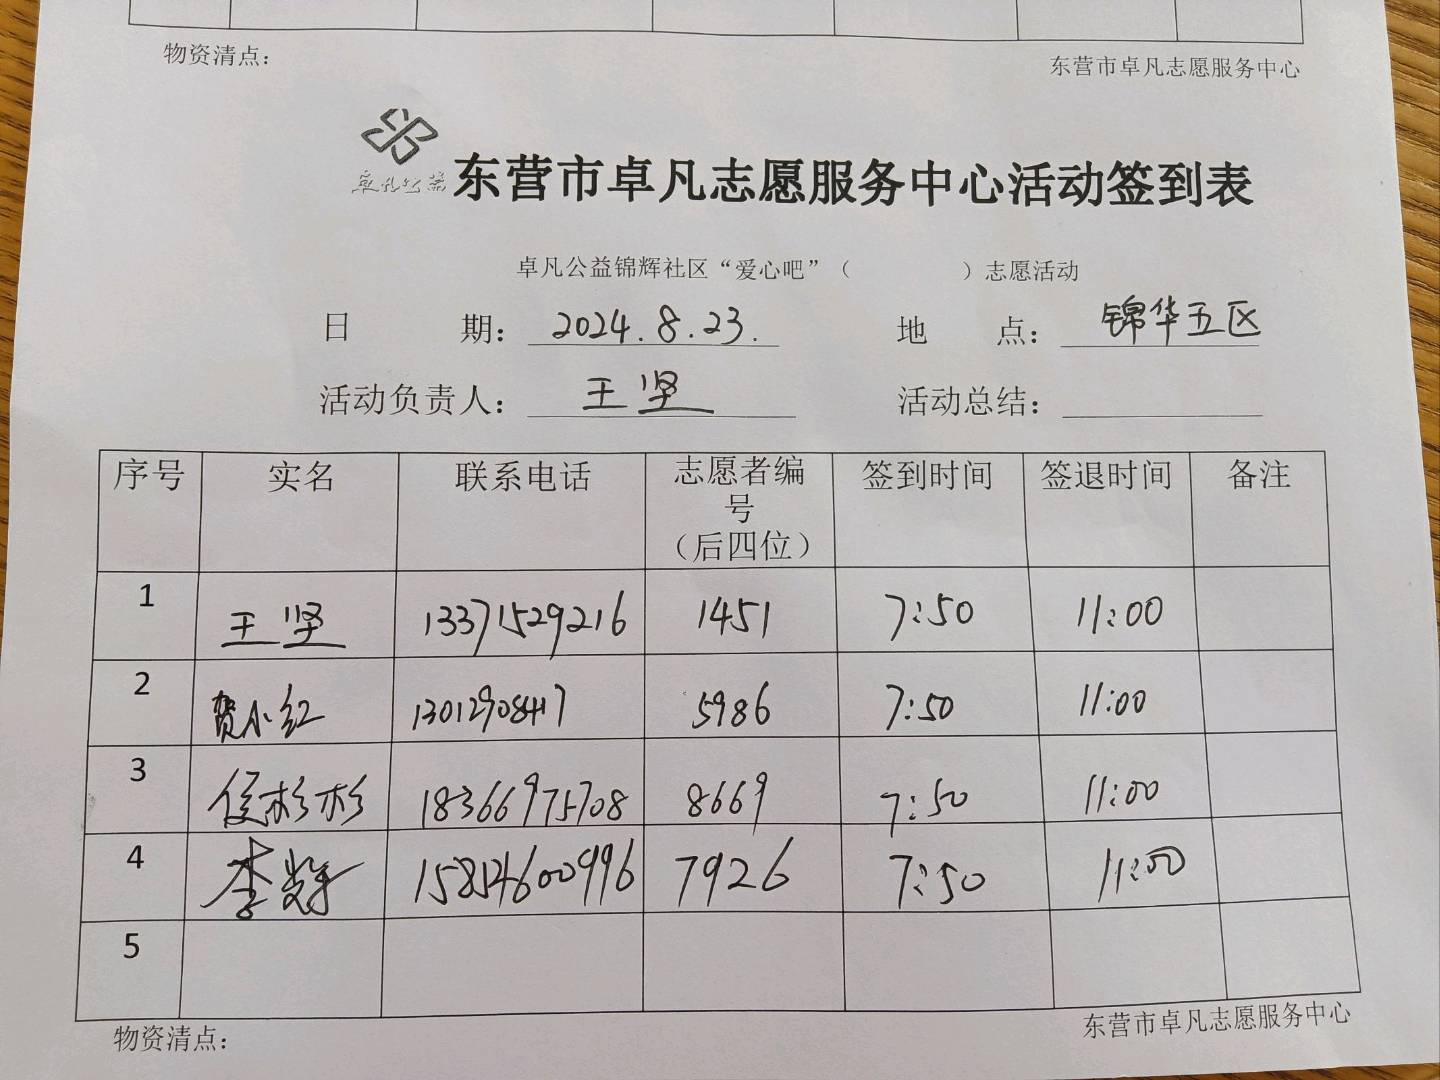 物资清点：
东营市卓凡志愿服务中心
卓凡公益
东营市卓凡志愿服务中心活动签到表
卓凡公益锦辉社区“爱心吧”（ ）志愿活动
日 期： 2024.8.23. 地 点： 锦华五区
活动负责人： 王坚 活动总结：
序号 实名 联系电话 志愿者编号（后四位） 签到时间 签退时间 备注
1 王坚 13371529216 1451 7:50 11:00
2 贺小红 13012908417 5986 7:50 11:00
3 侯杉杉 18366975708 8669 7:50 11:00
4 李 7926 7:50 11:00
5
物资清点：
东营市卓凡志愿服务中心